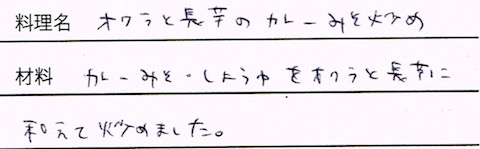 料理名 オクラと長芋のカレーみそ炒め
材料 カレーみそ・しょうゆをオクラと長芋に
和えて炒めました。